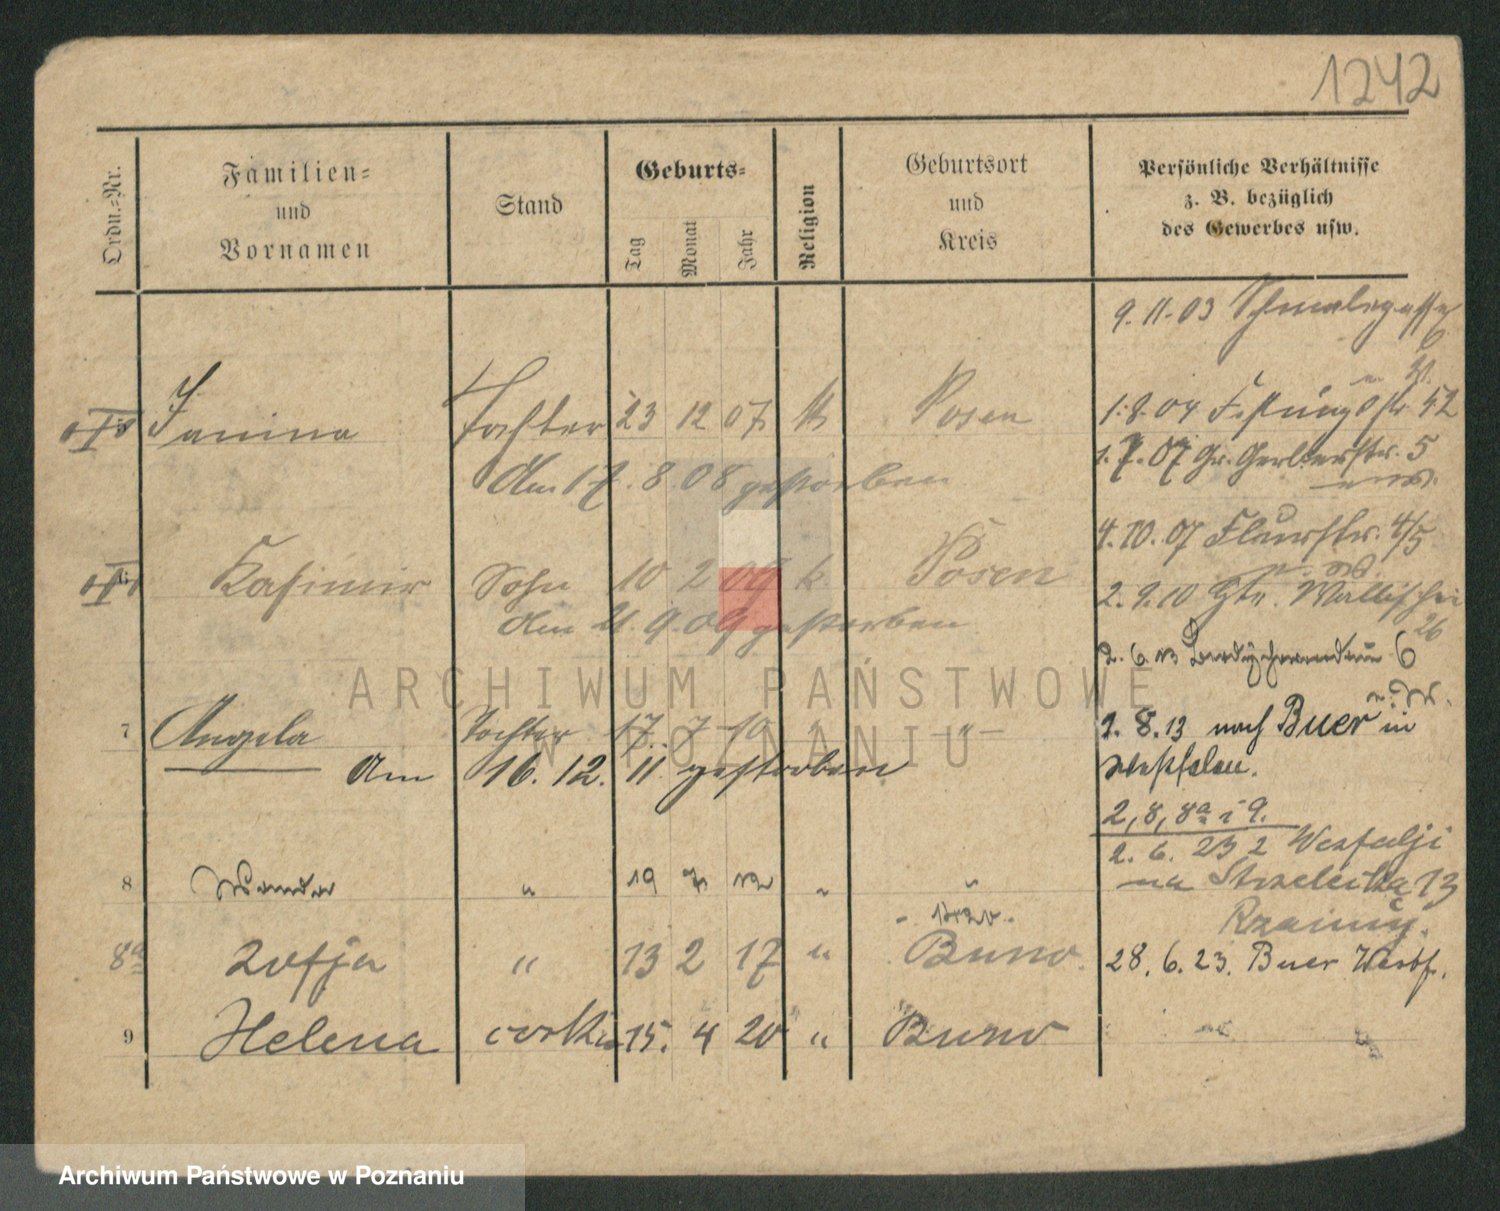 1242
Ordn.-Nr.
Familien-
und
Vornamen
Stand
Geburts-
Tag
Monat
Jahr
Religion
Geburtsort
und
Kreis
Persönliche Verhältnisse
z. B. bezüglich
des Gewerbes usw.
9.11.03 Schmalegasse
6
Janina Tochter 23 12 07 k Posen
1.8.04 Festungsstr. 42
Am 17.8.08 gestorben
1.7.07 Gr. Gerberstr. 5
4.10.07 Flurstr. 4/5
6 Kasimir Sohn 10 2 09 k. Posen
2.9.10 Wallischei
26
Am 21.9.09 gestorben
2.6.13 6
7 Angela Tochter 17. 7 10 " "
Am 16.12.11 gestorben
2.8.13 nach Buer in
Westfalen.
2, 8, 8a i 9.
2.6.23 z Westfalji
na Strzelecka 13
8 Wanda " 19 7 12 " "
8a Zofja " 13 2 17 " Buno.
28.6.23. Buer Westf.
9 Helena corka 15. 4 20 " Buno
ARCHIWUM PAŃSTWOWE
W POZNANIU
Archiwum Państwowe w Poznaniu